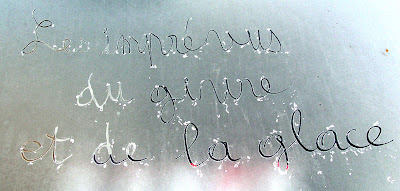 Les imprévus
du givre
et de la glace